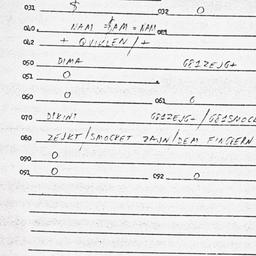 031 $ 032 0
040. NAM =$AM = NAM 041
042 + QUIKLEN / +
050 DIMA GE1ZEJG+
051 0
050 0 061 0
070 DIKINI GE1ZEJG- / GE1SMOCK
080 ZEJKT / SMOCKET ZAJN / DEM FINGERN
090 0
091 0 092 0